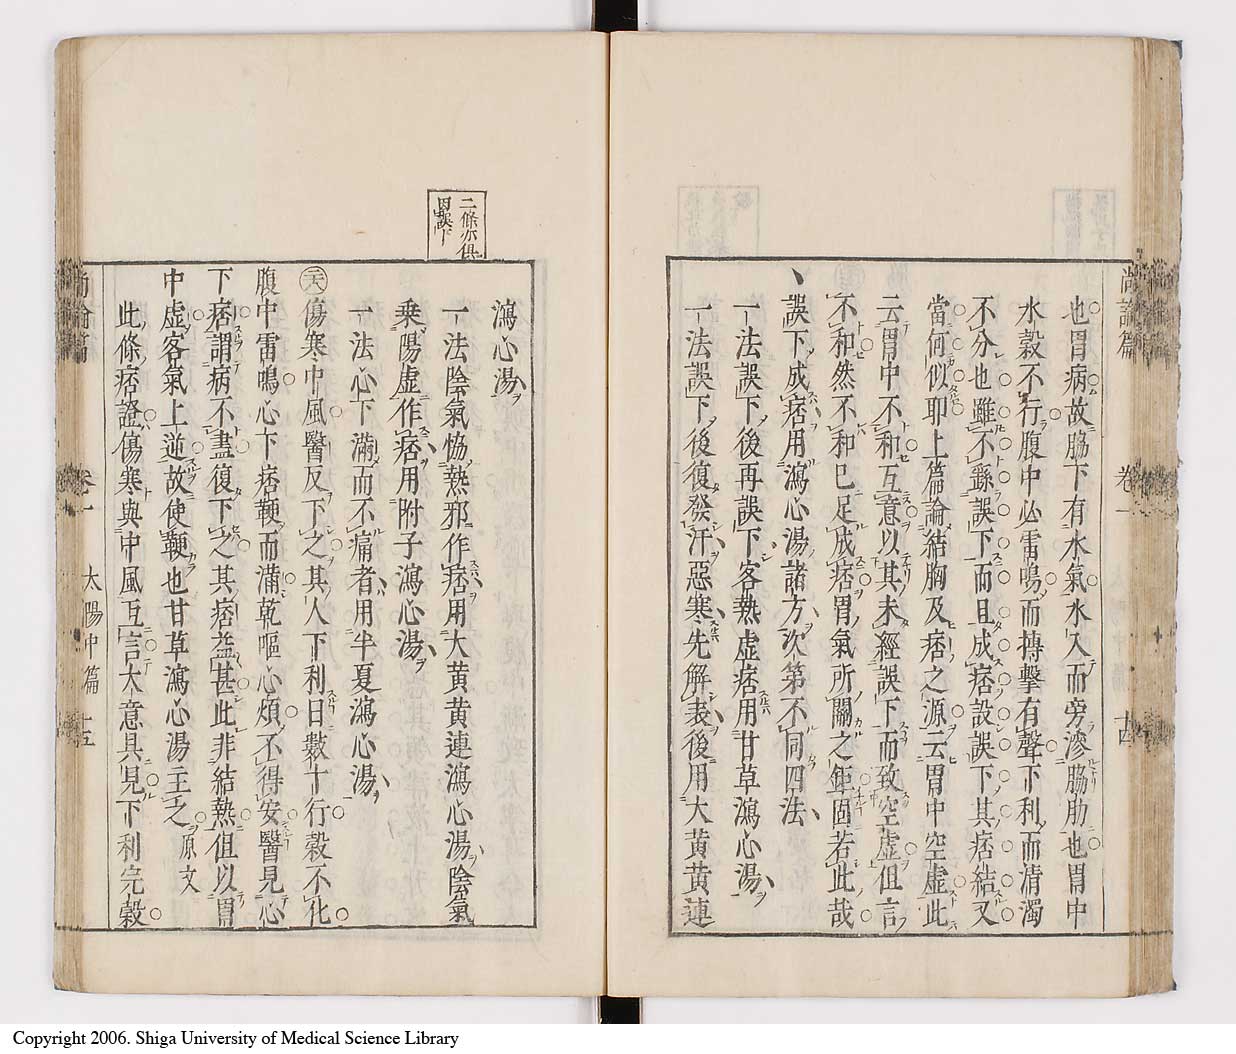 尚論篇 卷一 十四
也胃病故脇下有水氣水入而旁滲脇肋也胃中
水穀不行腹中必雷鳴而搏擊有聲下利而清濁
不分也雖不繇誤下而且成痞設誤下其痞結又
當何似耶上篇論結胸及痞之源云胃中空虛此
云胃中不和互意以其未經誤下而致空虛但言
不和然不和已足成痞胃氣所關之鉅固若此哉
誤下成痞用瀉心湯諸方次第不同四法
一法誤下後再誤下客熱虛痞用甘草瀉心湯
一法誤下後復發汗惡寒先解表後用大黃黃連
二條亦俱
因誤下
瀉心湯
一法陰氣恊熱邪作痞用大黃黃連瀉心湯陰氣
乗陽虛作痞用附子瀉心湯
一法心下滿而不痛者用半夏瀉心湯
傷寒中風醫反下之其人下利日數十行穀不化
腹中雷鳴心下痞鞕而滿乾嘔心煩不得安醫見心
下痞謂病不盡復下之其痞益甚此非結熱但以胃
中虛客氣上逆故使鞕也甘草瀉心湯主之原文
此條痞證傷寒與中風互言大意具見下利完穀
尚論篇 卷一 太陽中篇 十五
Copyright 2006. Shiga University of Medical Science Library